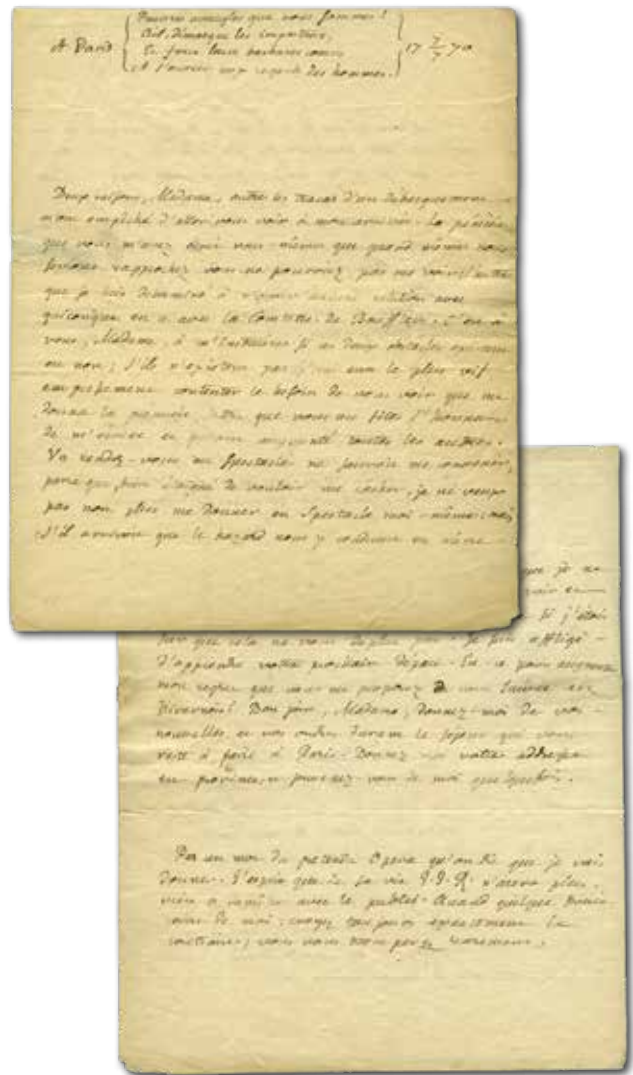 Pauvres aveugles que nous sommes!
Ciel, démasque les imposteurs,
Et force leurs barbares cœurs
A Paris 17 7/7 70
A s'ouvrir aux regards des hommes.
Deux raisons, Madame, outre les tracas d'un débarquement
m'ont empêché d'aller vous voir à mon arrivée. La première
que vous m'avez écrit vous-même que quand même nous
serions rapprochés nous ne pourrions pas nous voir; l'autre
que je suis déterminé à n'avoir aucune relation avec
quiconque en a avec la Comtesse de Boufflers. C'est à
vous, Madame, à m'instruire si ces deux obstacles existent
ou non; s'ils n'existent pas j'irai avec le plus vif
empressement contenter le besoin de vous voir que me
donna la première lettre que vous me fites l'honneur
de m'écrire et qu'ont augmenté toutes les autres.
Un rendez-vous au Spectacle ne sauroit me convenir,
parce que, bien éloigné de vouloir me cacher, je ne veux
pas non plus me donner en Spectacle moi-même; mais
s'il arrivoit que le hazard nous y conduisit en même
que je ne
si j'étois
sur que cela ne vous déplut pas. Je suis affligé
d'apprendre votre prochain départ. Est-ce pour augmenter
mon regret que vous me proposez de vous suivre en
Nivernois? Bon jour, Madame, donnez-moi de vos
nouvelles et vos ordres durant le séjour qui vous
reste à faire à Paris. Donnez-moi votre addresse
en province, et souvenez-vous de moi quelquefois.
Pas un mot du prétendu Opera qu'on dit que je vais
donner. J'espére que de sa vie J. J. R. n'aura plus
rien à démêler avec le public. Quand quelque bruit
court de moi, croyez toujours exactement le
contraire; vous vous tromperez rarement.